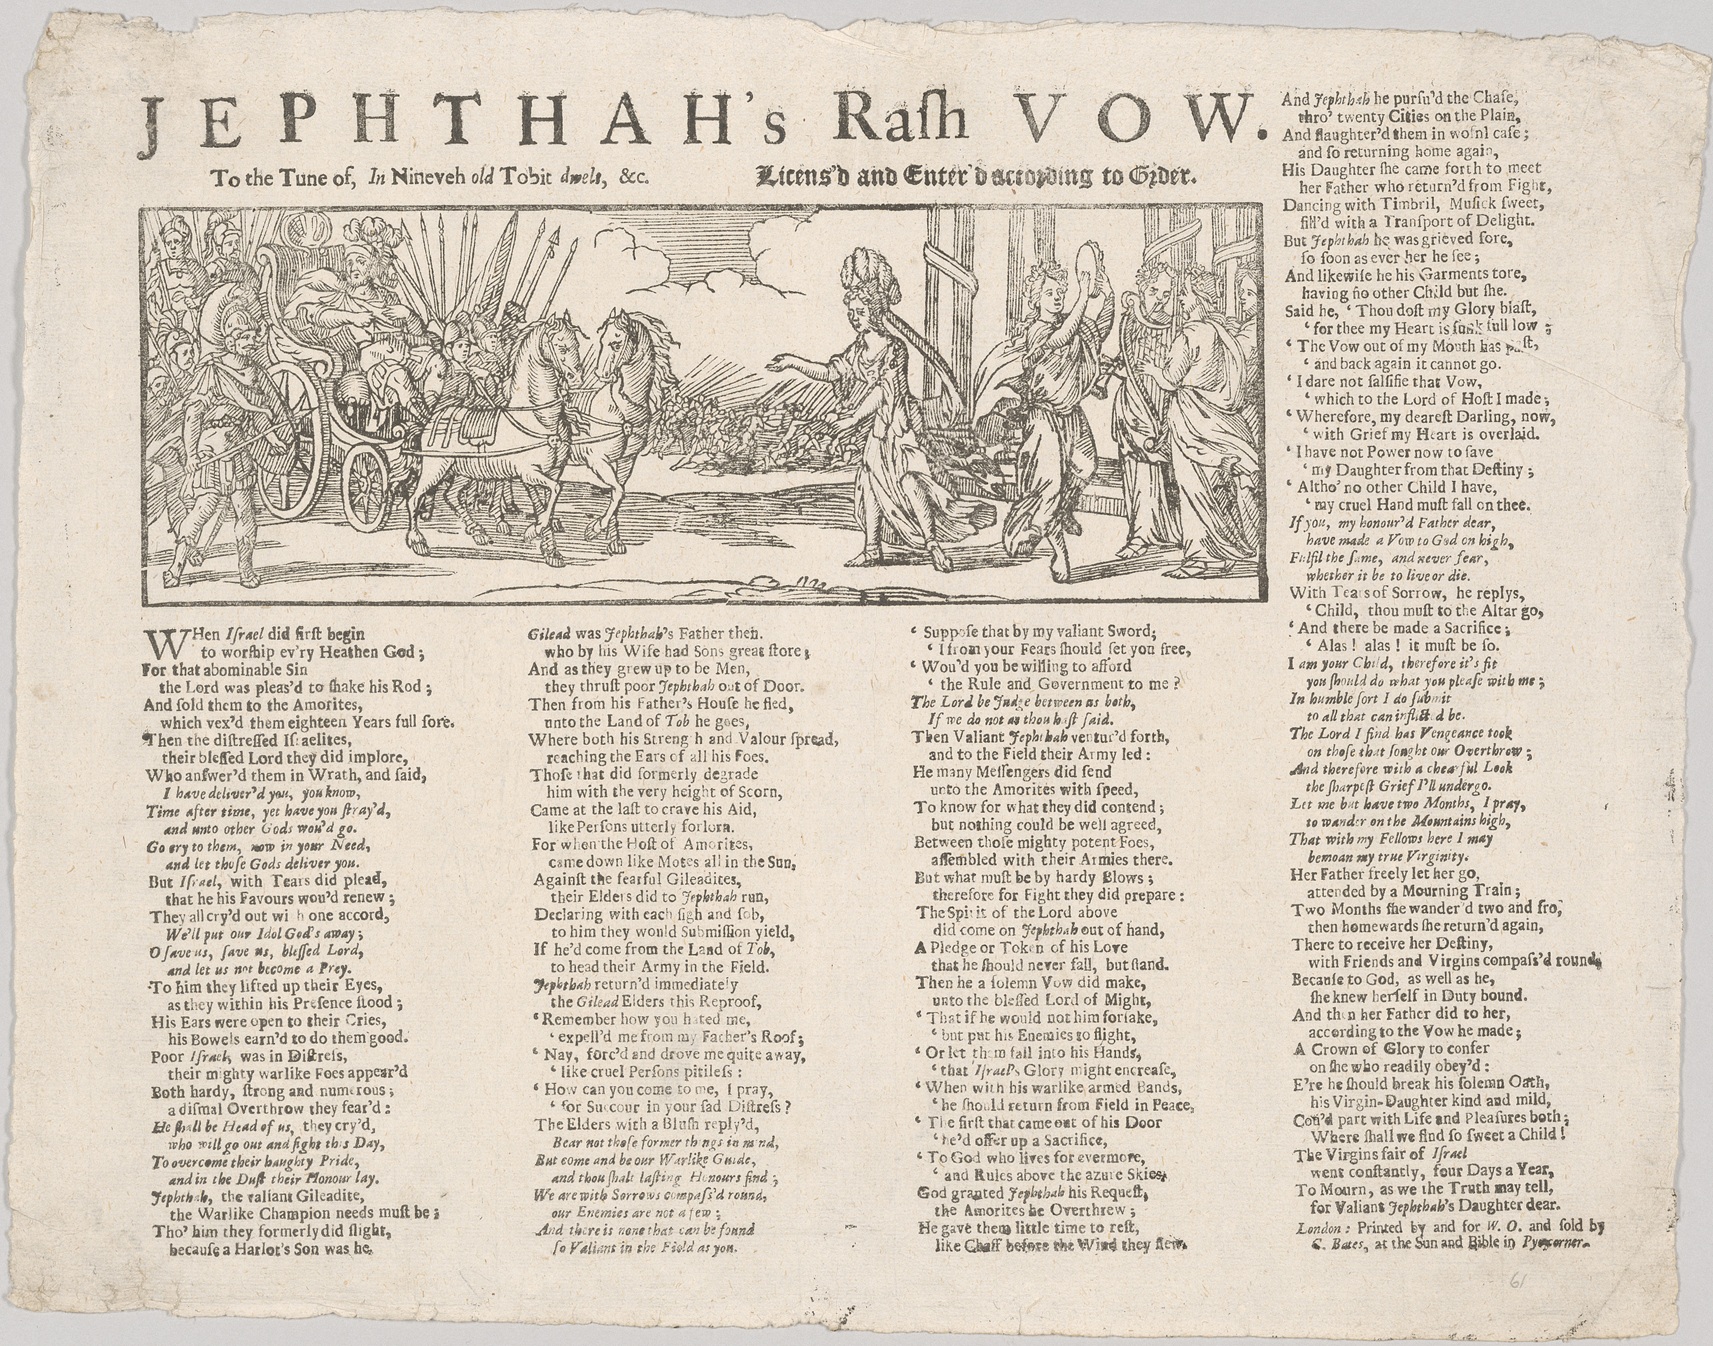 JEPHTHAH's Raſh VOW.
To the Tune of, In Nineveh old Tobit dwels, &c.
Licens'd and Enter'd according to Order.
WHen Iſrael did firſt begin
to worſhip ev'ry Heathen God;
For that abominable Sin
the Lord was pleas'd to ſhake his Rod;
And ſold them to the Amorites,
which vex'd them eighteen Years full ſore.
Then the diſtreſſed Iſraelites,
their bleſſed Lord they did implore,
Who anſwer'd them in Wrath, and ſaid,
I have deliver'd you, you know,
Time after time, yet have you ſtray'd,
and unto other Gods wou'd go.
Go cry to them, now in your Need,
and let thoſe Gods deliver you.
But Iſrael, with Tears did plead,
that he his Favours wou'd renew;
They all cry'd out wi h one accord,
We'll put our Idol God's away;
O ſave us, ſave us, bleſſed Lord,
and let us not become a Prey.
To him they lifted up their Eyes,
as they within his Preſence ſtood;
His Ears were open to their Cries,
his Bowels earn'd to do them good.
Poor Iſrael, was in Diſtreſs,
their mighty warlike Foes appear'd
Both hardy, ſtrong and numerous;
a diſmal Overthrow they fear'd:
He ſhall be Head of us, they cry'd,
who will go out and fight this Day,
To overcome their haughty Pride,
and in the Duſt their Honour lay.
Jephthah, the valiant Gileadite,
the Warlike Champion needs muſt be;
Tho' him they formerly did ſlight,
becauſe a Harlot's Son was he.
Gilead was Jephthah's Father then.
who by his Wife had Sons great ſtore;
And as they grew up to be Men,
they thruſt poor Jephthah out of Door.
Then from his Father's Houſe he fled,
unto the Land of Tob he goes,
Where both his Streng h and Valour ſpread,
reaching the Ears of all his Foes.
Thoſe that did formerly degrade
him with the very height of Scorn,
Came at the laſt to crave his Aid,
like Perſons utterly forlorn.
For when the Hoſt of Amorites,
came down like Motes all in the Sun,
Againſt the fearful Gileadites,
their Elders did to Jephthah run,
Declaring with each ſigh and ſob,
to him they would Submiſſion yield,
If he'd come from the Land of Tob,
to head their Army in the Field.
Jephthah return'd immediately
the Gilead Elders this Reproof,
‘ Remember how you hated me,
‘ expell'd me from my Father's Roof;
‘ Nay, forc'd and drove me quite away,
‘ like cruel Perſons pitileſs:
‘ How can you come to me, I pray,
‘ for Succour in your ſad Diſtreſs?
The Elders with a Bluſh reply'd,
Bear not thoſe former things in mind,
But come and be our Warlike Guide,
and thou ſhalt laſting Honours find;
We are with Sorrows compaſs'd round,
our Enemies are not a few;
And there is none that can be found
ſo Valiant in the Field as you.
‘ Suppoſe that by my valiant Sword;
‘ I from your Fears ſhould ſet you free,
‘ Wou'd you be willing to afford
‘ the Rule and Government to me?
The Lord be Judge between us both,
If we do not as thou haſt ſaid.
Then Valiant Jephthah ventur'd forth,
and to the Field their Army led:
He many Meſſengers did ſend
unto the Amorites with ſpeed,
To know for what they did contend;
but nothing could be well agreed,
Between thoſe mighty potent Foes,
aſſembled with their Armies there.
But what muſt be by hardy Blows;
therefore for Fight they did prepare:
The Spirit of the Lord above
did come on Jephthah out of hand,
A Pledge or Token of his Love
that he ſhould never fall, but ſtand.
Then he a ſolemn Vow did make,
unto the bleſſed Lord of Might,
‘ That if he would not him forſake,
‘ but put his Enemies to flight,
‘ Or let them fall into his Hands,
‘ that Iſrael's Glory might encreaſe,
‘ When with his warlike armed Bands,
‘ he ſhould return from Field in Peace,
‘ The firſt that came out of his Door
‘ he'd offer up a Sacrifice,
‘ To God who lives for evermore,
‘ and Rules above the azure Skies.
God granted Jephthah his Requeſt,
the Amorites he Overthrew;
He gave them little time to reſt,
like Chaff before the Wind they flew.
And Jephthah he purſu'd the Chaſe,
thro' twenty Cities on the Plain,
And ſlaughter'd them in woful caſe;
and ſo returning home again,
His Daughter ſhe came forth to meet
her Father who return'd from Fight,
Dancing with Timbril, Muſick ſweet,
fill'd with a Tranſport of Delight.
But Jephthah he was grieved ſore,
ſo ſoon as ever her he ſee;
And likewiſe he his Garments tore,
having no other Child but ſhe.
Said he, ‘ Thou doſt my Glory blaſt,
‘ for thee my Heart is ſunk full low;
‘ The Vow out of my Mouth has paſt,
‘ and back again it cannot go.
‘ I dare not falſifie that Vow,
‘ which to the Lord of Hoſt I made;
‘ Wherefore, my deareſt Darling, now,
‘ with Grief my Heart is overlaid.
‘ I have not Power now to ſave
‘ my Daughter from that Deſtiny;
‘ Altho' no other Child I have,
‘ my cruel Hand muſt fall on thee.
If you, my honour'd Father dear,
have made a Vow to God on high,
Fulfil the ſame, and never fear,
whether it be to live or die.
With Tears of Sorrow, he replys,
‘ Child, thou muſt to the Altar go,
‘ And there be made a Sacrifice;
‘ Alas! alas! it muſt be ſo.
I am your Child, therefore it's fit
you ſhould do what you pleaſe with me;
In humble ſort I do ſubmit
to all that can inflicted be.
The Lord I find has Vengeance took
on thoſe that ſought our Overthrow;
And therefore with a chearful Look
the ſharpeſt Grief I'll undergo.
Let me but have two Months, I pray,
to wander on the Mountains high,
That with my Fellows here I may
bemoan my true Virginity.
Her Father freely let her go,
attended by a Mourning Train;
Two Months ſhe wander'd two and fro,
then homewards ſhe return'd again,
There to receive her Deſtiny,
with Friends and Virgins compaſs'd round,
Becauſe to God, as well as he,
ſhe knew herſelf in Duty bound.
And then her Father did to her,
according to the Vow he made;
A Crown of Glory to confer
on ſhe who readily obey'd:
E're he ſhould break his ſolemn Oath,
his Virgin-Daughter kind and mild,
Cou'd part with Life and Pleaſures both;
Where ſhall we find ſo ſweet a Child!
The Virgins fair of Iſrael
went conſtantly, four Days a Year,
To Mourn, as we the Truth may tell,
for Valiant Jephthah's Daughter dear.
London: Printed by and for W. O. and ſold by
C. Bates, at the Sun and Bible in Pye-corner.
61